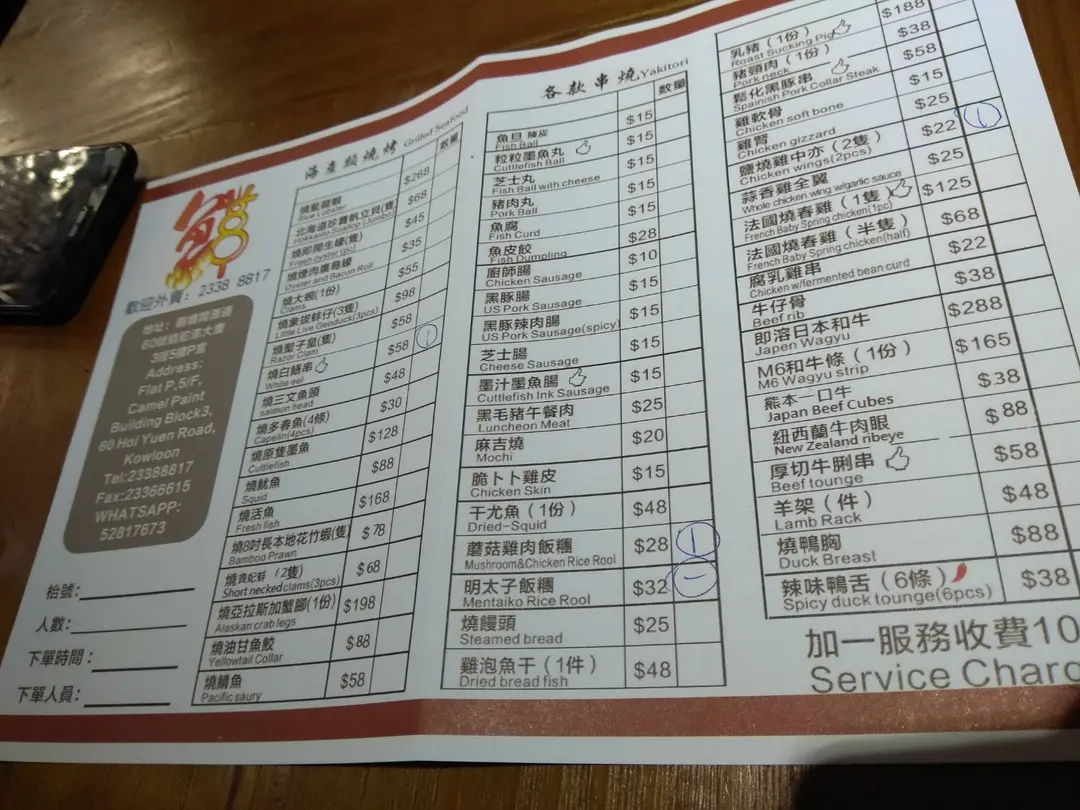 鮮
歡迎外賣：2338 8817
地址：觀塘開源道
60號駱駝漆大廈
3座5樓P室
Address:
Flat P,5/F,
Camel Paint
Building Block3,
60 Hoi Yuen Road,
Kowloon
Tel:23388817
Fax:23366615
WHATSAPP:
52817673
枱號：
人數：
下單時間：
下單人員：
海產類燒烤 Grilled Seafood 數量
燒藍龍蝦 $268
Blue Lobster
北海道珍寶帆立貝(隻) $68
Hokkaido Scallop (Jumbo)
燒即開生蠔(隻) $45
Fresh oyster(pc)
燒煙肉廣島蠔 $35
Oyster and Bacon Roll
燒大蜆(1份) $55
Clams
燒象拔蚌仔(3隻) $98
Little Live Geoduck(3pcs)
燒聖子皇(隻) $58
Razor Clam
燒白鱔串 $58 1
White eel
燒三文魚頭 $48
salmon head
燒多春魚(4條) $30
Capelin(4pcs)
燒原隻墨魚 $128
Cuttlefish
燒魷魚 $88
Squid
燒活魚 $168
Fresh fish
燒8吋長本地花竹蝦(隻) $78
Bamboo Prawn
燒貴妃蚌（2隻） $68
Short necked clams(3pcs)
燒亞拉斯加蟹腳(1份) $198
Alaskan crab legs
燒油甘魚鮫 $88
Yellowtail Collar
燒鯖魚 $58
Pacific saury
各款串燒 Yakitori 數量
魚旦 陳皮 $15
Fish Ball
粒粒墨魚丸 $15
Cuttlefish Ball
芝士丸 $15
Fish Ball with cheese
豬肉丸 $15
Pork Ball
魚腐 $15
Fish Curd
魚皮餃 $28
Fish Dumpling
廚師腸 $10
Chicken Sausage
黑豚腸 $15
US Pork Sausage
黑豚辣肉腸 $15
US Pork Sausage(spicy)
芝士腸 $15
Cheese Sausage
墨汁墨魚腸 $15
Cuttlefish Ink Sausage
黑毛豬午餐肉 $25
Luncheon Meat
麻吉燒 $20
Mochi
脆卜卜雞皮 $15
Chicken Skin
干尤魚（1份） $48
Dried-Squid
蘑菇雞肉飯糰 $28 1
Mushroom&Chicken Rice Rool
明太子飯糰 $32 一
Mentaiko Rice Rool
燒饅頭 $25
Steamed bread
雞泡魚干（1件） $48
Dried bread fish
乳豬（1份） $188
Roast Sucking Pig
豬頸肉（1份） $38
Pork neck
鬆化黑豚串 $58
Spainish Pork Collar Steak
雞軟骨 $15
Chicken soft bone
雞腎 $25
Chicken gizzard
鹽燒雞中亦（2隻） $22 1
Chicken wings(2pcs)
蒜香雞全翼 $25
Whole chicken wing w/garlic sauce
法國燒春雞（1隻） $125
French Baby Spring chicken(1pc)
法國燒春雞（半隻） $68
French Baby Spring chicken(half)
腐乳雞串 $22
Chicken w/fermented bean curd
牛仔骨 $38
Beef rib
即溶日本和牛 $288
Japen Wagyu
M6和牛條（1份） $165
M6 Wagyu strip
熊本一口牛 $38
Japan Beef Cubes
紐西蘭牛肉眼 $88
New Zealand ribeye
厚切牛脷串 $58
Beef tounge
羊架（件） $48
Lamb Rack
燒鴨胸 $88
Duck Breast
辣味鴨舌（6條） $38
Spicy duck tounge(6pcs)
加一服務收費10
Service Charg